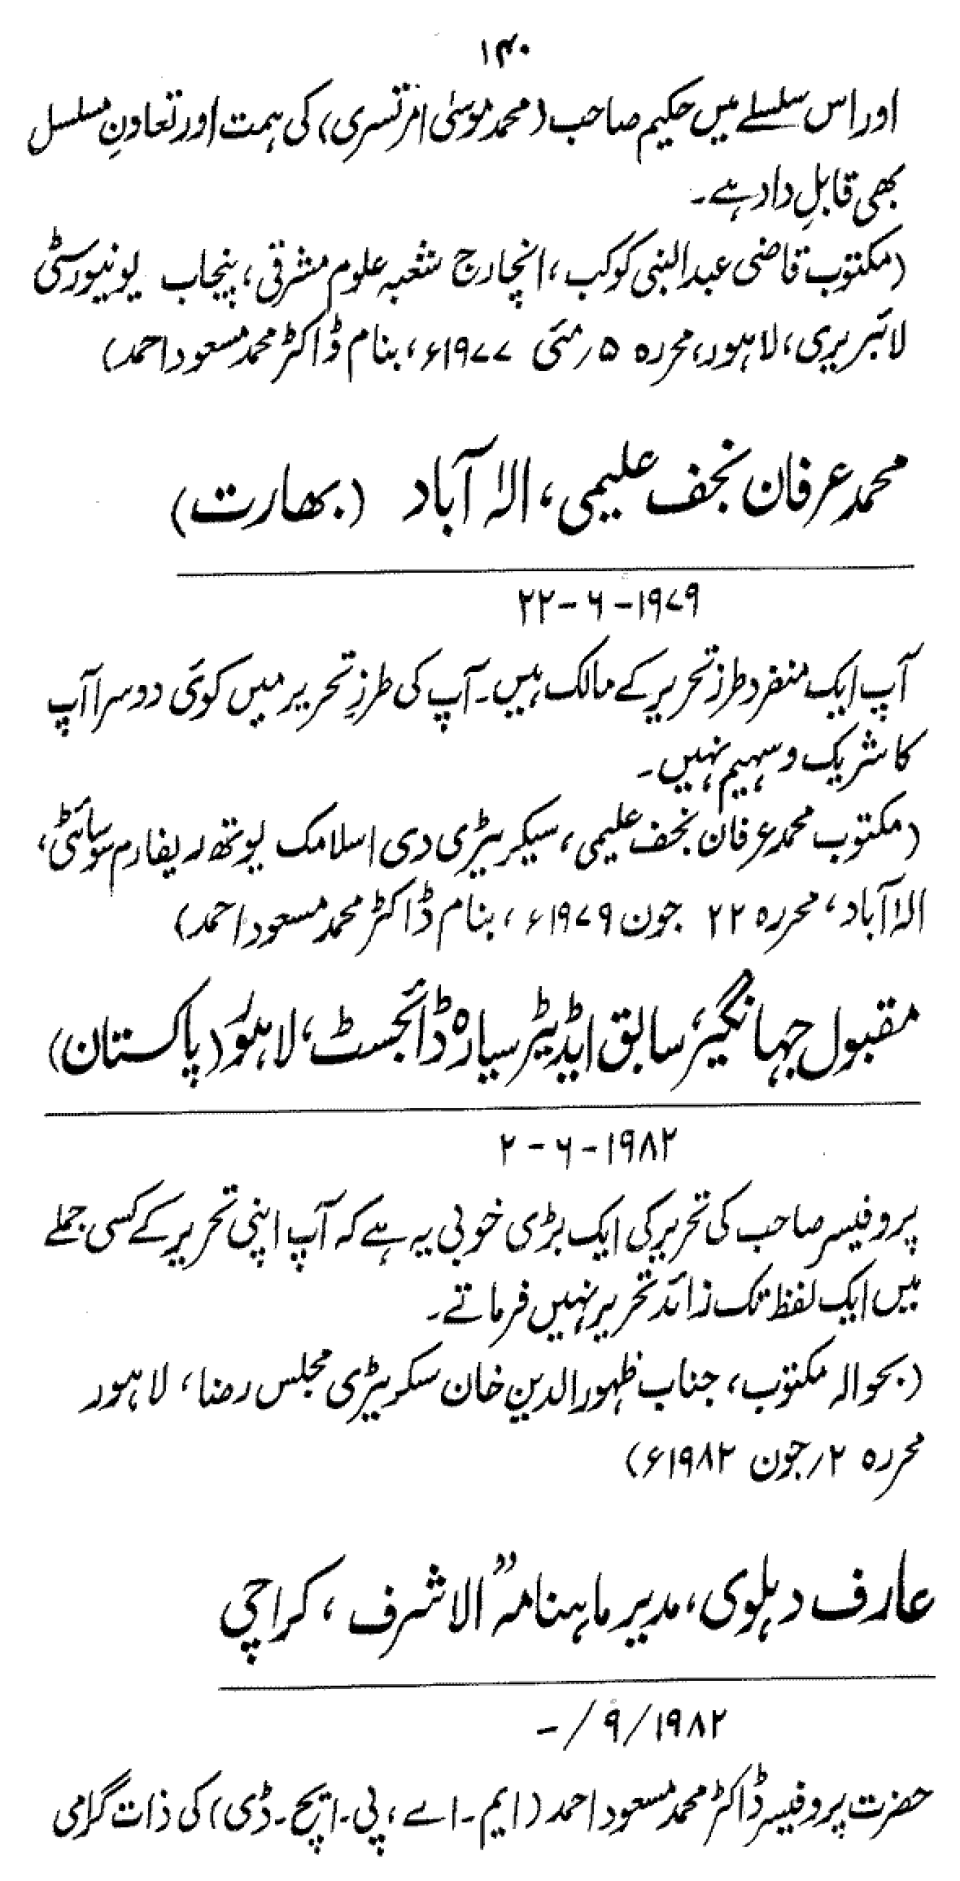 ۱۴۰
اور اس سلسلے میں حکیم صاحب (محمد موسیٰ امرتسری) کی ہمت اور تعاونِ مسلسل
بھی قابلِ داد ہے۔
(مکتوب قاضی عبدالنبی کوکب، انچارج شعبہ علوم مشرقی، پنجاب یونیورسٹی
لائبریری، لاہور، محررہ ۵ ؍مئی ۱۹۷۷ء، بنام ڈاکٹر محمد مسعود احمد)
محمد عرفان نجف علیمی، الہٰ آباد (بھارت)
۲۲-۶-۱۹۷۹
آپ ایک منفرد طرز تحریر کے مالک ہیں۔ آپ کی طرزِ تحریر میں کوئی دوسرا آپ
کا شریک و سہیم نہیں۔
(مکتوب محمد عرفان نجف علیمی، سیکریٹری دی اسلامک یوتھ ریفارم سوسائٹی،
الہٰ آباد، محررہ ۲۲ جون ۱۹۷۹ء، بنام ڈاکٹر محمد مسعود احمد)
مقبول جہانگیر، سابق ایڈیٹر سیارہ ڈائجسٹ، لاہور (پاکستان)
۲-۶-۱۹۸۲
پروفیسر صاحب کی تحریر کی ایک بڑی خوبی یہ ہے کہ آپ اپنی تحریر کے کسی جملے
میں ایک لفظ تک زائد تحریر نہیں فرماتے۔
(بحوالہ مکتوب، جناب ظہور الدین خان سکریٹری مجلس رضا، لاہور
محررہ ۲؍جون ۱۹۸۲ء)
عارف دہلوی، مدیر ماہنامہ "الاشرف، کراچی
-/۹/۱۹۸۲
حضرت پروفیسر ڈاکٹر محمد مسعود احمد (ایم۔اے، پی۔ایچ۔ڈی) کی ذات گرامی